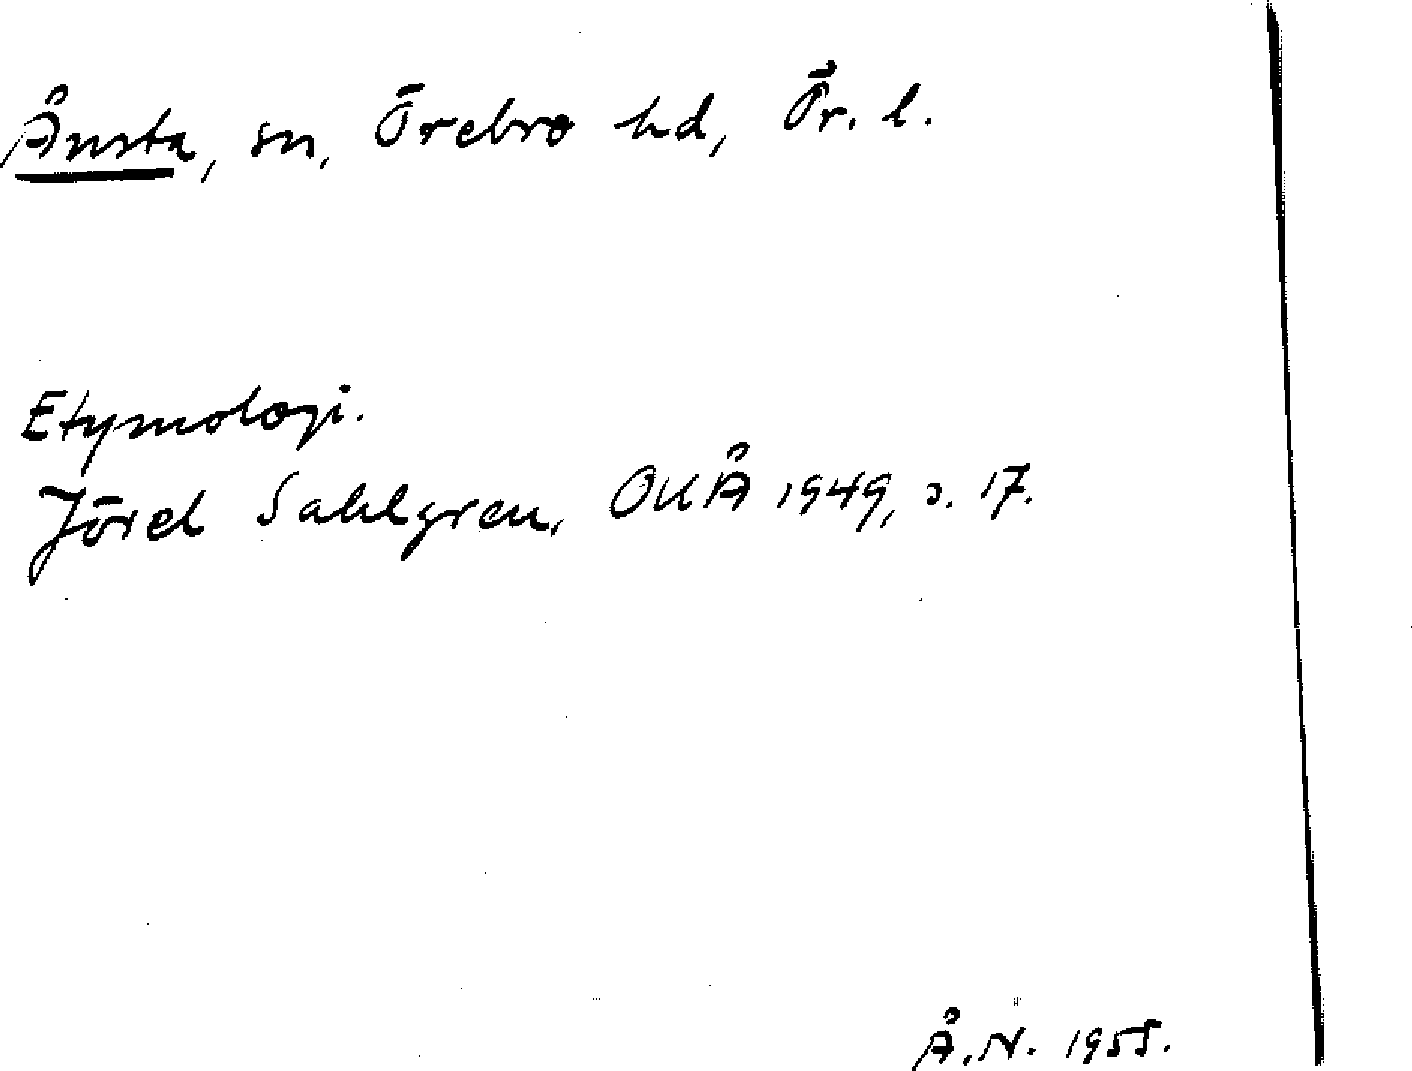 Ånsta, sn, Örebro hd, Ör. l.
Etymologi.
Jöran Sahlgren, OUÅ 1949, s. 17.
Å.N. 1955.